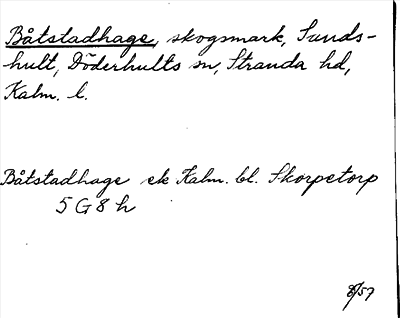 Båtstadhage, skogsmark, Sunds-
hult, Döderhults sn, Stranda hd,
Kalm. l.
Båtstadhage ek Kalm. bl. Skorpetorp
5 G 8 h
8/57